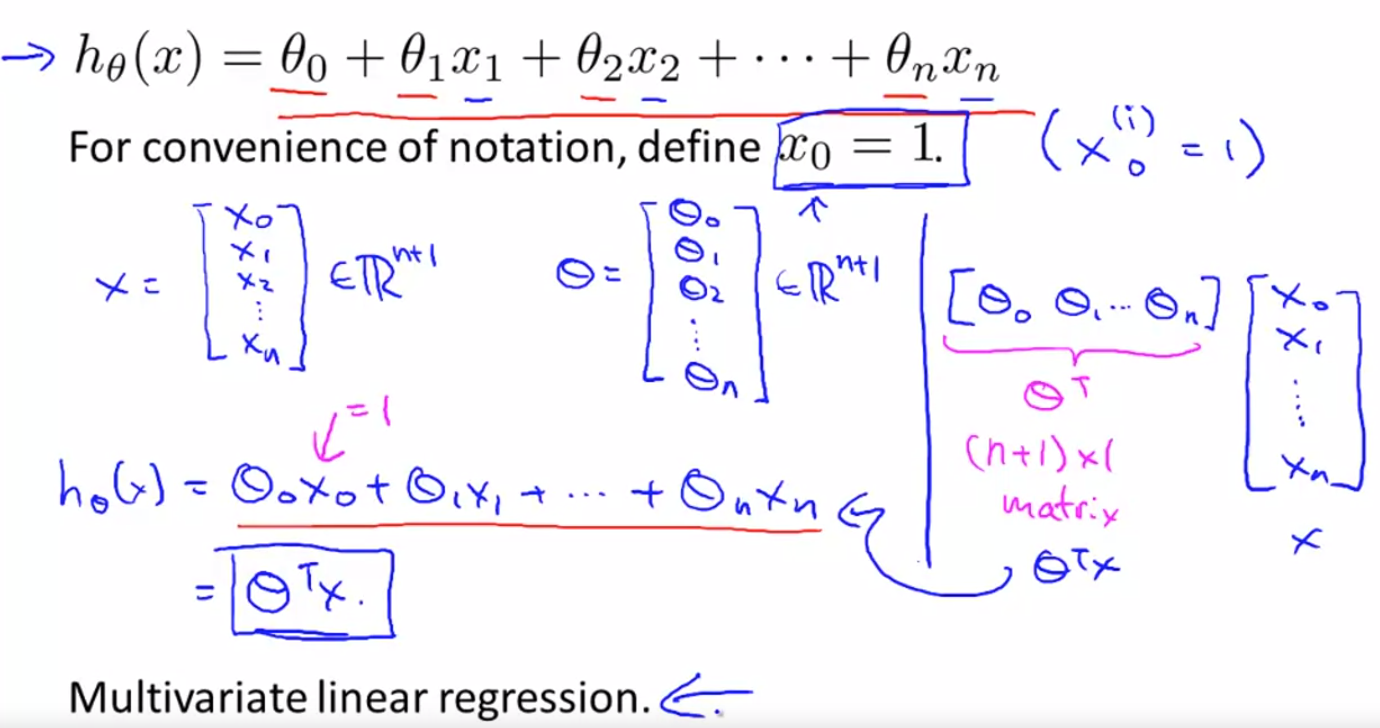 → h_θ(x) = θ_0 + θ_1x_1 + θ_2x_2 + ⋯ + θ_nx_n
For convenience of notation, define x_0 = 1. (x_0^(i) = 1)
x = [x_0 x_1 x_2 ⋮ x_n] ∈ ℝ^{n+1} θ = [θ_0 θ_1 θ_2 ⋮ θ_n] ∈ ℝ^{n+1}
[θ_0 θ_1 ... θ_n] [x_0 x_1 ⋮ x_n]
θ^T
(n+1)×1
matrix
x
θ^Tx
=1
h_θ(x) = θ_0x_0 + θ_1x_1 + ⋯ + θ_nx_n
= θ^Tx.
Multivariate linear regression. ←